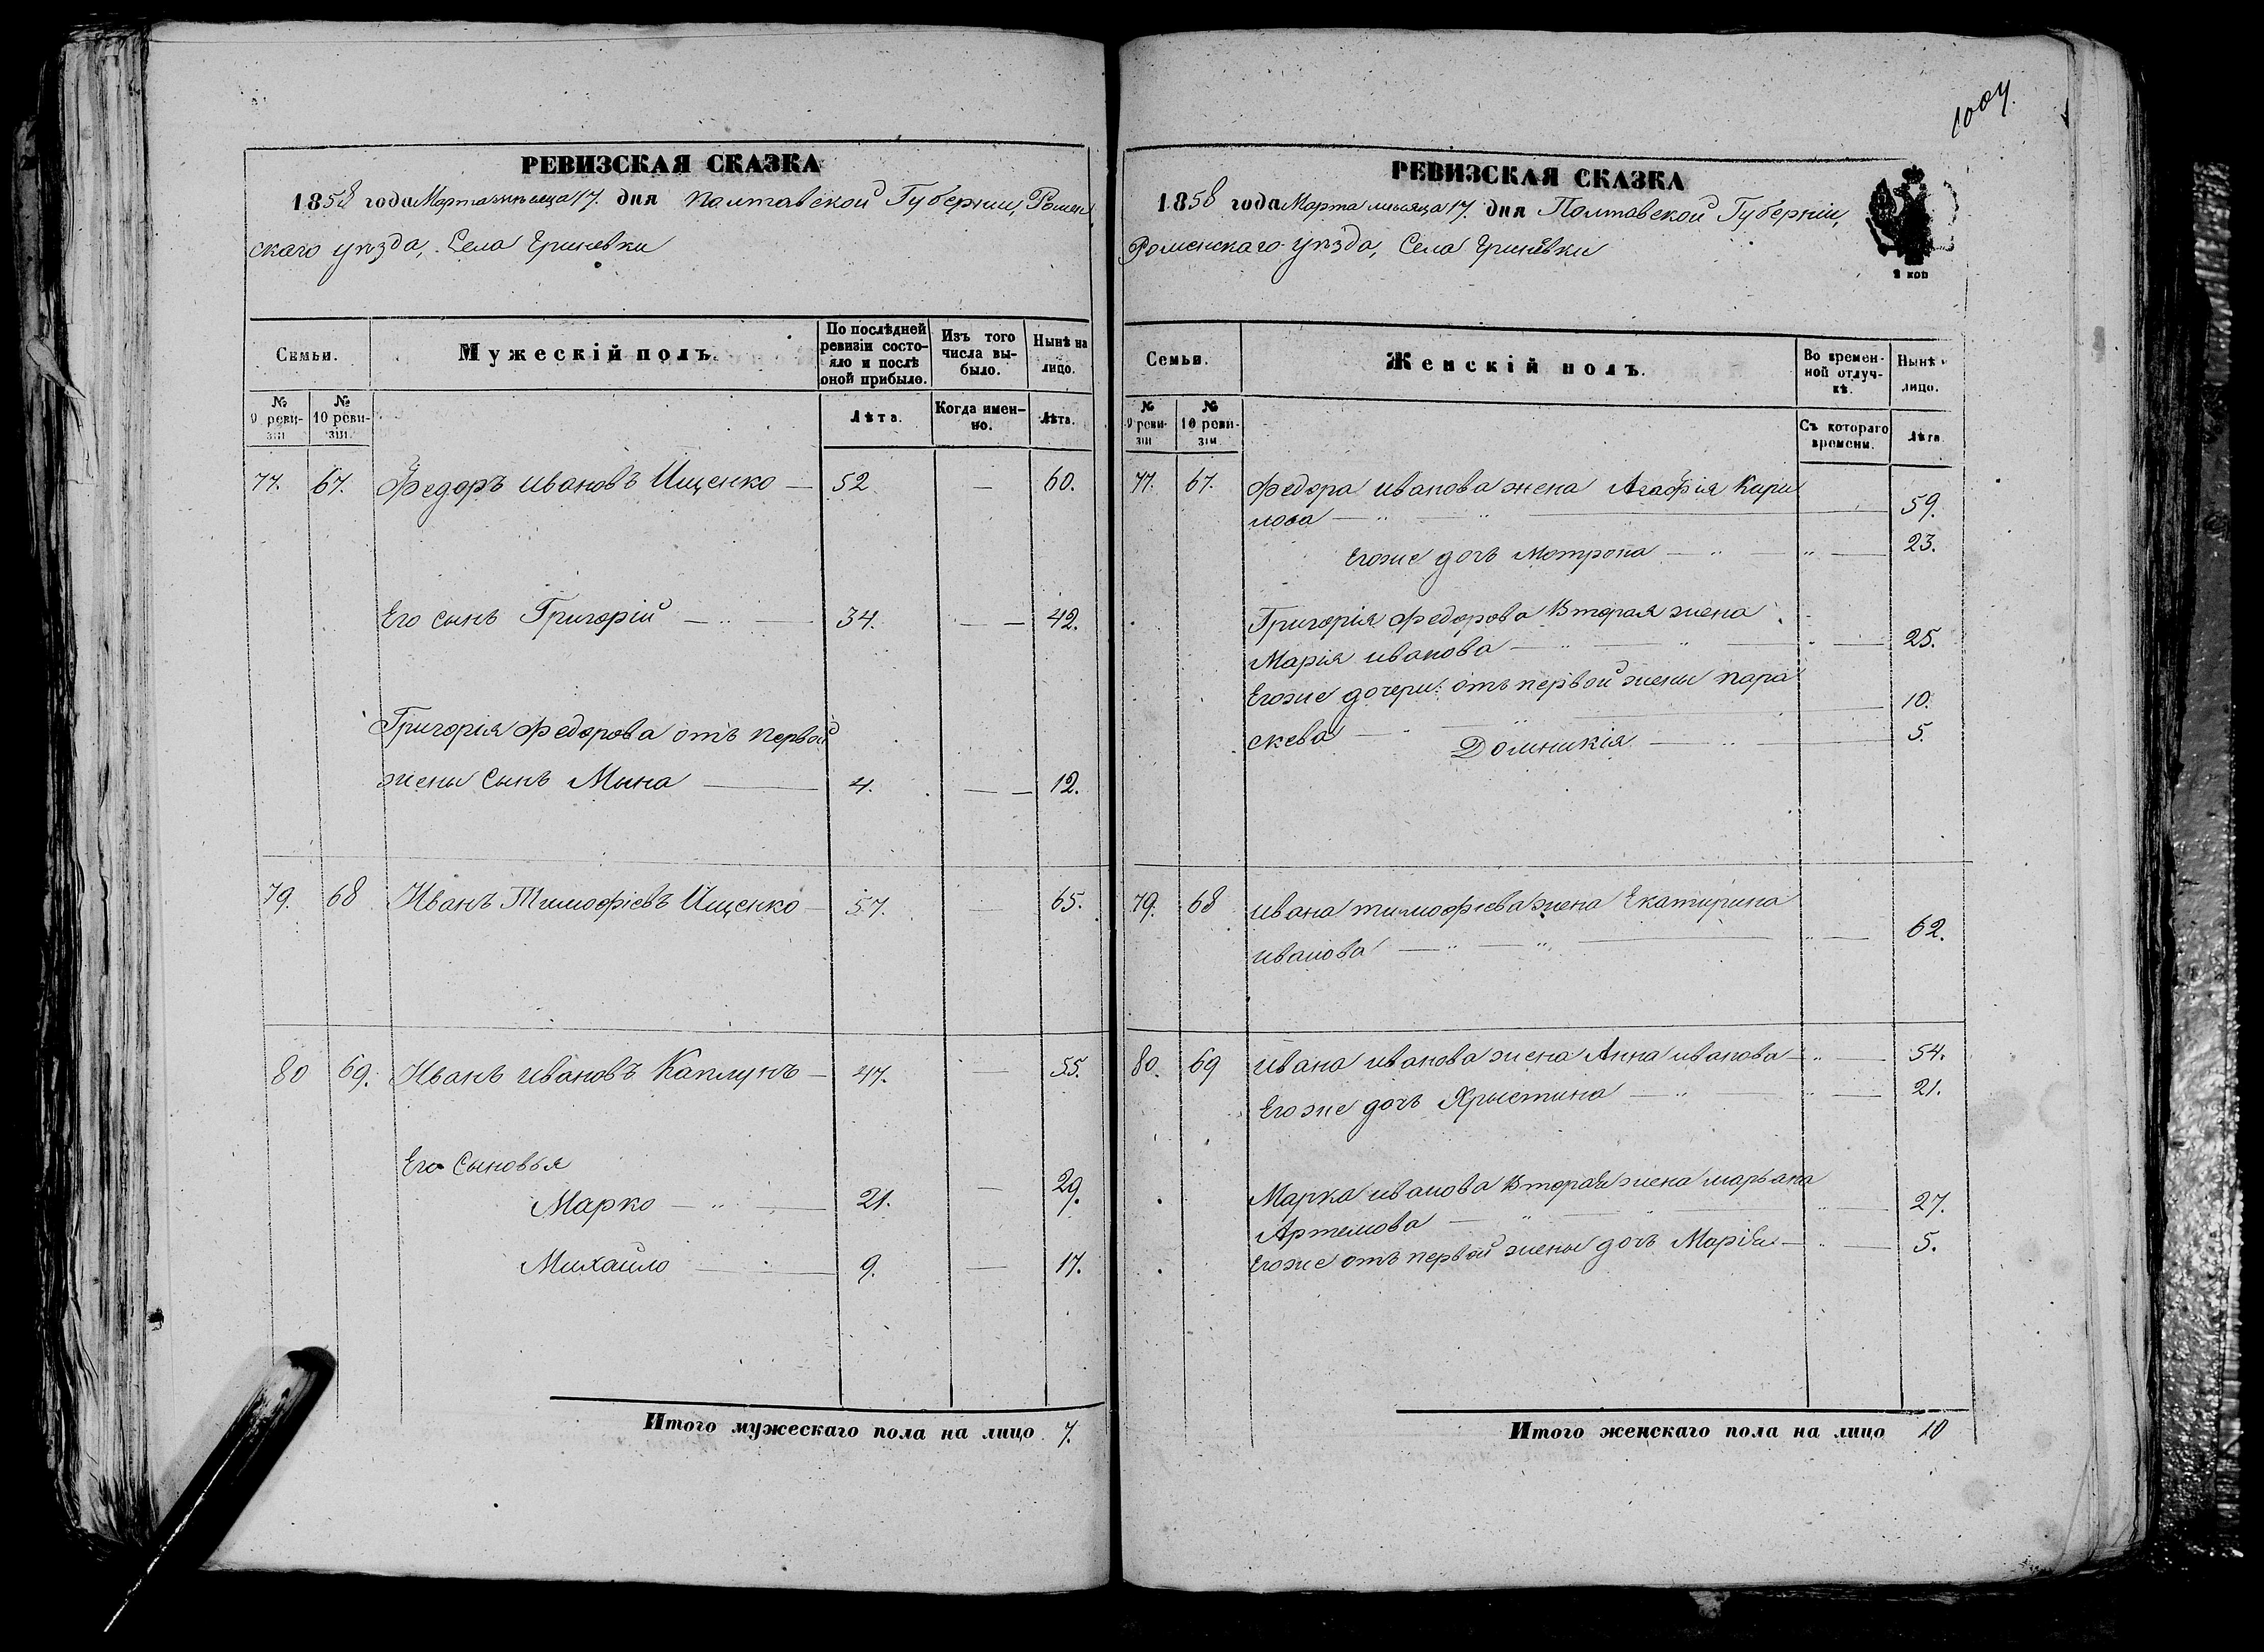 1004.
РЕВИЗСКАЯ СКАЗКА
1858 года Марта мѣсяца 17. дня Полтавской Губерніи, Ромен
скаго уѣзда, Села Гриневки
Семьи.
Мужескій полъ.
По послѣдней ревизіи состояло и послѣ оной прибыло.
Изъ того числа выбыло.
Нынѣ на лицо.
№ 9 ревизіи
№ 10 ревизіи.
Лѣта.
Когда именно.
Лѣта.
77. 67. Федоръ Ивановъ Ищенко — 52 — 60.
Его сынъ Григорій — 34. — 42.
Григорія Федорова отъ первой
жены сынъ Мина — 4. — 12.
79. 68 Иванъ Тимофіевъ Ищенко — 57. — 65.
80 69. Иванъ Ивановъ Каплунъ — 47. — 55.
Его Сыновья
Марко — 21. — 29.
Михайло — 9. — 17.
Итого мужескаго пола на лицо 7.
РЕВИЗСКАЯ СКАЗКА
1858 года Марта мѣсяца 17. дня Полтавской Губерніи,
Роменскаго уѣзда, Села Гриневки
2 коп
Семьи.
Женскій полъ.
Во временной отлучкѣ.
Нынѣ
лицо.
№ 9 ревизіи
№ 10 ревизіи.
Съ котораго времени.
Лѣта
77. 67. Федора Иванова жена Агафія Кири
лова — 59.
Егоже дочь Мотрона — 23.
Григорія Федорова Вторая жена
Марія Иванова — 25.
Егоже дочери отъ первой жены Пара
скева — 10.
Домникія — 5.
79. 68 Ивана Тимофіева жена Екатирина
Иванова — 62.
80. 69 Ивана Иванова жена Анна Иванова — 54.
Егоже дочь Христина — 21.
Марка Иванова Вторая жена Марьана
Артемова — 27.
Егоже отъ первой жены дочь Марія — 5.
Итого женскаго пола на лицо 10